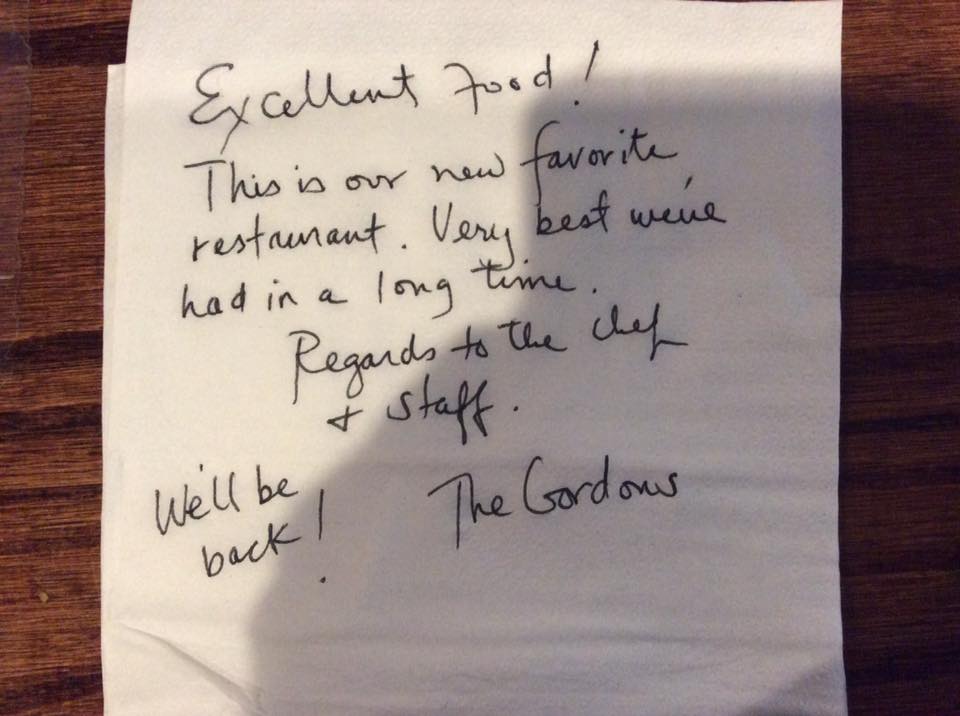 Excellent Food!
This is our new favorite
restaurant. Very best we've
had in a long time.
Regards to the chef
+ staff.
We'll be
back!
The Gordons